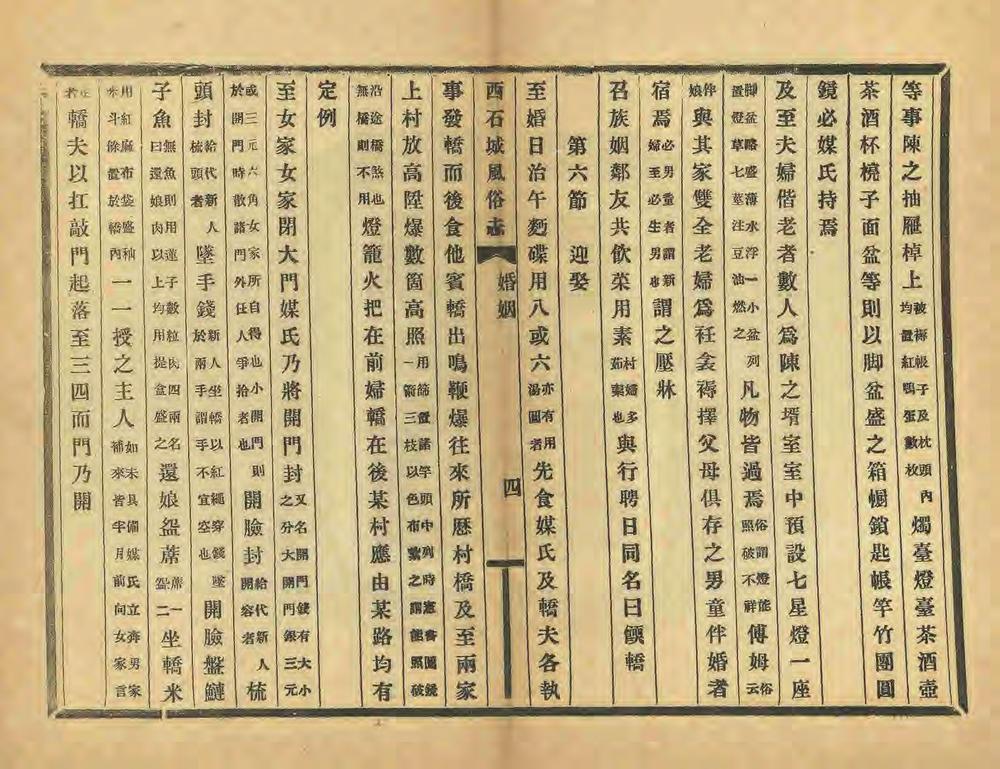 等事陳之抽屜棹上被褥帳子及枕頭內均置紅鴨蛋數枚燭臺燈臺茶酒壺
茶酒杯橈子面盆等則以脚盆盛之箱橱鎖匙帳竿竹團圓
鏡必媒氏持焉
及至夫婦偕老者數人爲陳之壻室室中預設七星燈一座
脚盆略盛薄水浮一小盆列置燈草七莖注豆油燃之凡物皆過焉俗謂燈能照破不祥傅姆俗云
伴娘與其家雙全老婦爲衽衾褥擇父母俱存之男童伴婚者
宿焉必男童者謂新婦至必生男也謂之壓牀
召族姻鄰友共飲菜用素村婦多茹素也與行聘日同名曰餪轎
第六節 迎娶
至婚日治午麪碟用八或六亦有用湯圓者先食媒氏及轎夫各執
西石城風俗志 婚姻 四
事發轎而後食他賓轎出鳴鞭爆往來所歷村橋及至兩家
上村放高陞爆數箇高照用篩置諸竿頭中列時憲書圓鏡一箭三枝以色布繫之謂能照破
沿途橋煞也無橋則不用燈籠火把在前婦轎在後某村應由某路均有
定例
至女家女家閉大門媒氏乃將開門封又名開門錢有大小之分大開門銀三元
或三元六角女家所自得也小開門則於開門時散諸門外任人爭拾者也開臉封給代新人開容者梳
頭封給代新人梳頭者墜手錢新人坐轎以紅繩穿錢墜於兩手謂手不宜空也開臉盤鰱
子魚無魚則用蓮子數粒肉四兩名曰還娘肉以上均用提盒盛之還娘盌蓆蓆一盌二坐轎米
用紅麻布袋盛秈米斗餘置於轎內一一授之主人如未具備媒氏立奔男家補來皆字月前向女家言
者轎夫以扛敲門起落至三四而門乃開